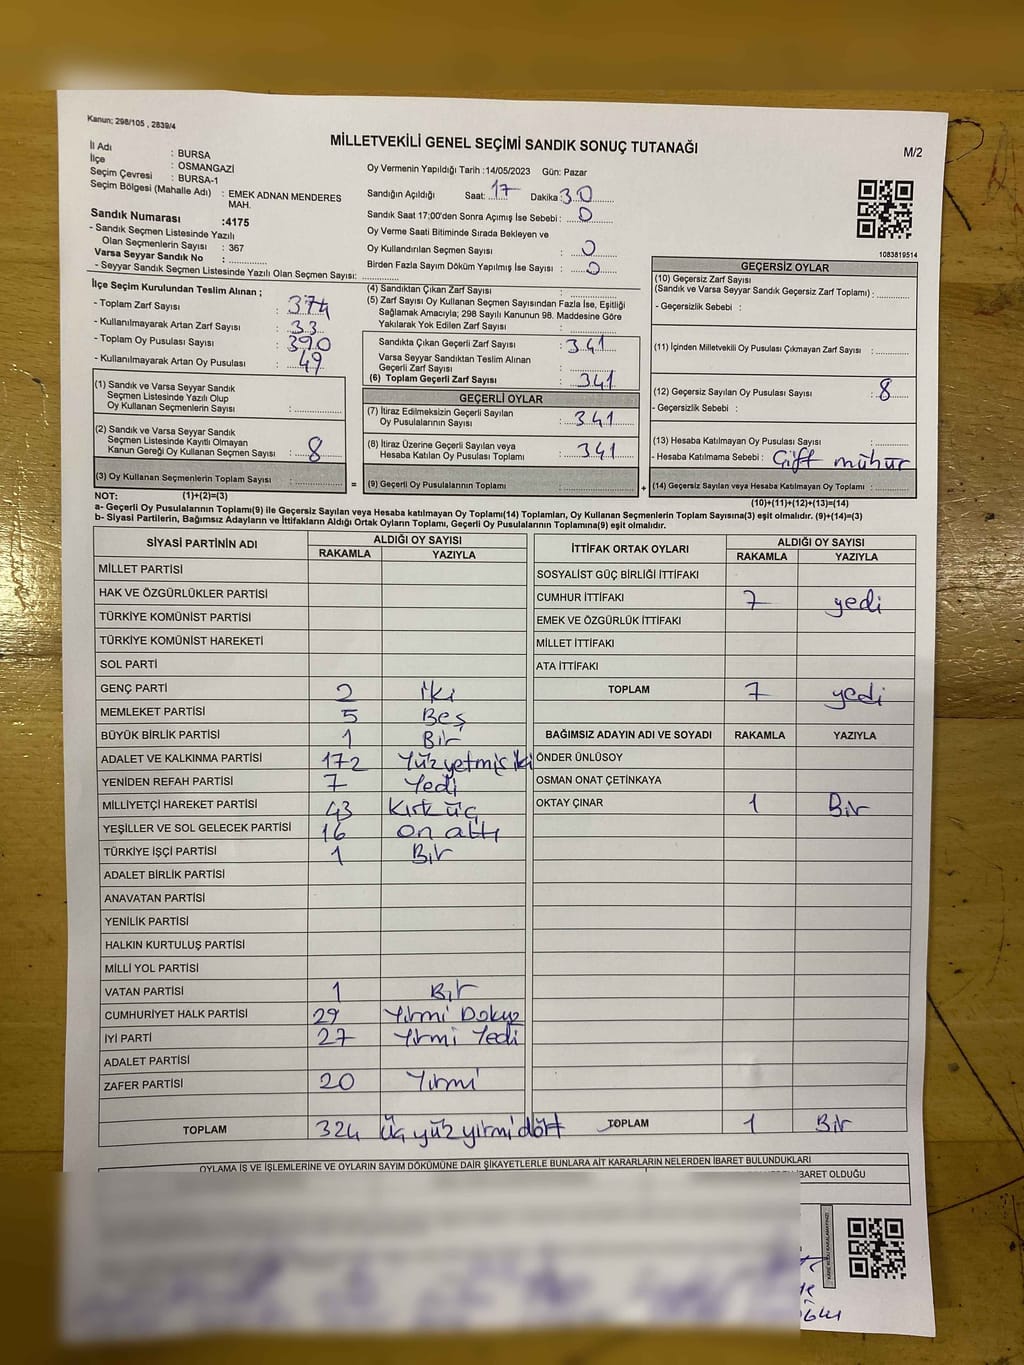 Kanun; 298/105 , 2839/4
MİLLETVEKİLİ GENEL SEÇİMİ SANDIK SONUÇ TUTANAĞI
M/2
İl Adı : BURSA
İlçe : OSMANGAZİ
Seçim Çevresi : BURSA-1
Seçim Bölgesi (Mahalle Adı) : EMEK ADNAN MENDERES MAH.
Sandık Numarası :4175
- Sandık Seçmen Listesinde Yazılı
Olan Seçmenlerin Sayısı : 367
Varsa Seyyar Sandık No :
- Seyyar Sandık Seçmen Listesinde Yazılı Olan Seçmen Sayısı:
Oy Vermenin Yapıldığı Tarih :14/05/2023 Gün: Pazar
Sandığın Açıldığı Saat: 17 Dakika: 30
Sandık Saat 17:00'den Sonra Açımış İse Sebebi : 0
Oy Verme Saati Bitiminde Sırada Bekleyen ve
Oy Kullandırılan Seçmen Sayısı : 0
Birden Fazla Sayım Döküm Yapılmış İse Sayısı : 0
1083819514
İlçe Seçim Kurulundan Teslim Alınan ;
- Toplam Zarf Sayısı : 374
- Kullanılmayarak Artan Zarf Sayısı : 33
- Toplam Oy Pusulası Sayısı : 390
- Kullanılmayarak Artan Oy Pusulası : 49
(1) Sandık ve Varsa Seyyar Sandık
Seçmen Listesinde Yazılı Olup
Oy Kullanan Seçmenlerin Sayısı :
(2) Sandık ve Varsa Seyyar Sandık
Seçmen Listesinde Kayıtlı Olmayan
Kanun Gereği Oy Kullanan Seçmen Sayısı : 8
(3) Oy Kullanan Seçmenlerin Toplam Sayısı : =
(4) Sandıktan Çıkan Zarf Sayısı :
(5) Zarf Sayısı Oy Kullanan Seçmen Sayısından Fazla İse, Eşitliği
Sağlamak Amacıyla; 298 Sayılı Kanunun 98. Maddesine Göre
Yakılarak Yok Edilen Zarf Sayısı :
Sandıkta Çıkan Geçerli Zarf Sayısı : 341
Varsa Seyyar Sandıktan Teslim Alınan
Geçerli Zarf Sayısı :
(6) Toplam Geçerli Zarf Sayısı : 341
GEÇERLİ OYLAR
(7) İtiraz Edilmeksizin Geçerli Sayılan
Oy Pusulalarının Sayısı : 341
(8) İtiraz Üzerine Geçerli Sayılan veya
Hesaba Katılan Oy Pusulası Toplamı : 341
(9) Geçerli Oy Pusulalarının Toplamı : +
GEÇERSİZ OYLAR
(10) Geçersiz Zarf Sayısı
(Sandık ve Varsa Seyyar Sandık Geçersiz Zarf Toplamı) :
- Geçersizlik Sebebi :
(11) İçinden Milletvekili Oy Pusulası Çıkmayan Zarf Sayısı :
(12) Geçersiz Sayılan Oy Pusulası Sayısı : 8
- Geçersizlik Sebebi :
(13) Hesaba Katılmayan Oy Pusulası Sayısı :
- Hesaba Katılmama Sebebi : Çift mühür
(14) Geçersiz Sayılan veya Hesaba Katılmayan Oy Toplamı :
NOT: (1)+(2)=(3) (10)+(11)+(12)+(13)=(14)
a- Geçerli Oy Pusulalarının Toplamı(9) ile Geçersiz Sayılan veya Hesaba katılmayan Oy Toplamı(14) Toplamları, Oy Kullanan Seçmenlerin Toplam Sayısına(3) eşit olmalıdır. (9)+(14)=(3)
b- Siyasi Partilerin, Bağımsız Adayların ve İttifakların Aldığı Ortak Oyların Toplamı, Geçerli Oy Pusulalarının Toplamına(9) eşit olmalıdır.
SİYASİ PARTİNİN ADI ALDIĞI OY SAYISI
RAKAMLA YAZIYLA
MİLLET PARTİSİ
HAK VE ÖZGÜRLÜKLER PARTİSİ
TÜRKİYE KOMÜNİST PARTİSİ
TÜRKİYE KOMÜNİST HAREKETİ
SOL PARTİ
GENÇ PARTİ 2 iki
MEMLEKET PARTİSİ 5 Beş
BÜYÜK BİRLİK PARTİSİ 1 Bir
ADALET VE KALKINMA PARTİSİ 172 Yüzyetmiş iki
YENİDEN REFAH PARTİSİ 7 Yedi
MİLLİYETÇİ HAREKET PARTİSİ 43 Kırk üç
YEŞİLLER VE SOL GELECEK PARTİSİ 16 on altı
TÜRKİYE İŞÇİ PARTİSİ 1 Bir
ADALET BİRLİK PARTİSİ
ANAVATAN PARTİSİ
YENİLİK PARTİSİ
HALKIN KURTULUŞ PARTİSİ
MİLLİ YOL PARTİSİ
VATAN PARTİSİ 1 Bir
CUMHURİYET HALK PARTİSİ 29 Yirmi Dokuz
İYİ PARTİ 27 Yirmi Yedi
ADALET PARTİSİ
ZAFER PARTİSİ 20 Yirmi
TOPLAM 324 üç yüz yirmi dört
İTTİFAK ORTAK OYLARI ALDIĞI OY SAYISI
RAKAMLA YAZIYLA
SOSYALİST GÜÇ BİRLİĞİ İTTİFAKI
CUMHUR İTTİFAKI 7 yedi
EMEK VE ÖZGÜRLÜK İTTİFAKI
MİLLET İTTİFAKI
ATA İTTİFAKI
TOPLAM 7 yedi
BAĞIMSIZ ADAYIN ADI VE SOYADI RAKAMLA YAZIYLA
ÖNDER ÜNLÜSOY
OSMAN ONAT ÇETİNKAYA
OKTAY ÇINAR 1 Bir
TOPLAM 1 Bir
OYLAMA İŞ VE İŞLEMLERİNE VE OYLARIN SAYIM DÖKÜMÜNE DAİR ŞİKAYETLERLE BUNLARA AİT KARARLARIN NELERDEN İBARET BULUNDUKLARI
İBARET OLDUĞU